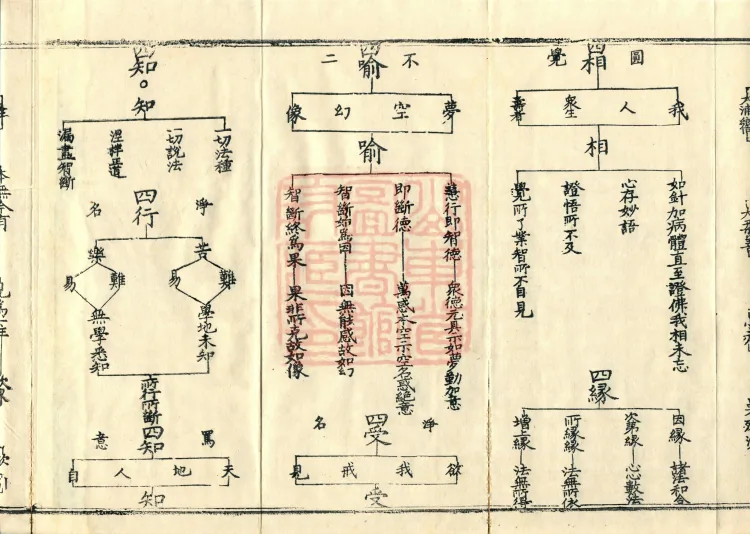 圓覺
四相
我 人 衆生 壽者
相
如針加病體直至證佛我相未忘
心存妙語
證悟所不及
覺所了業智所不自見
四緣
因緣 諸法和合
次第緣 心心數法
所緣緣 法無所依
增上緣 法無所得
不二
四喻
夢 空 幻 像
喻
慧行即智德 衆德元具示如夢動加意
即斷德 萬惑本空示空名惑絕意
智斷如爲因 因無能感故如幻
智斷終爲果 果非所克故如像
淨名
四受
欲 我 戒 見
受
四知
知
一切法種
一切說法
涅槃正道
漏盡智斷
淨名
四行
苦 樂
難 易 難 易
學地未知
無學悉知
所行所斷
罵意
四知
天 地 人 自
知